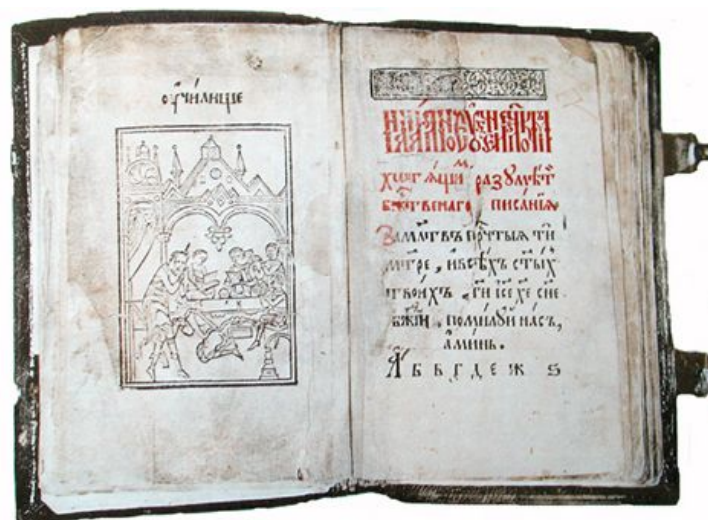 ѹчи́лище
хотѧ́щиⷨ разꙋмѣ́тѝ
бж҃е́ственаго писа́нїѧ
За мл҃твъ прⷱ҇тыѧ ти
мт҃ре, и всѣ́хъ ст҃ы́хъ
твои́хъ, гд҃и і҆с҃е хе҃ сн҃е
бж҃їи, поми́лꙋй на́съ,
а҆ми́нь.
А҆ Б В Г Д Е Ж Ѕ